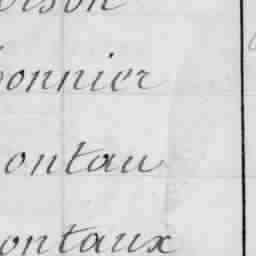 oison
onnier
ontau
ontaux